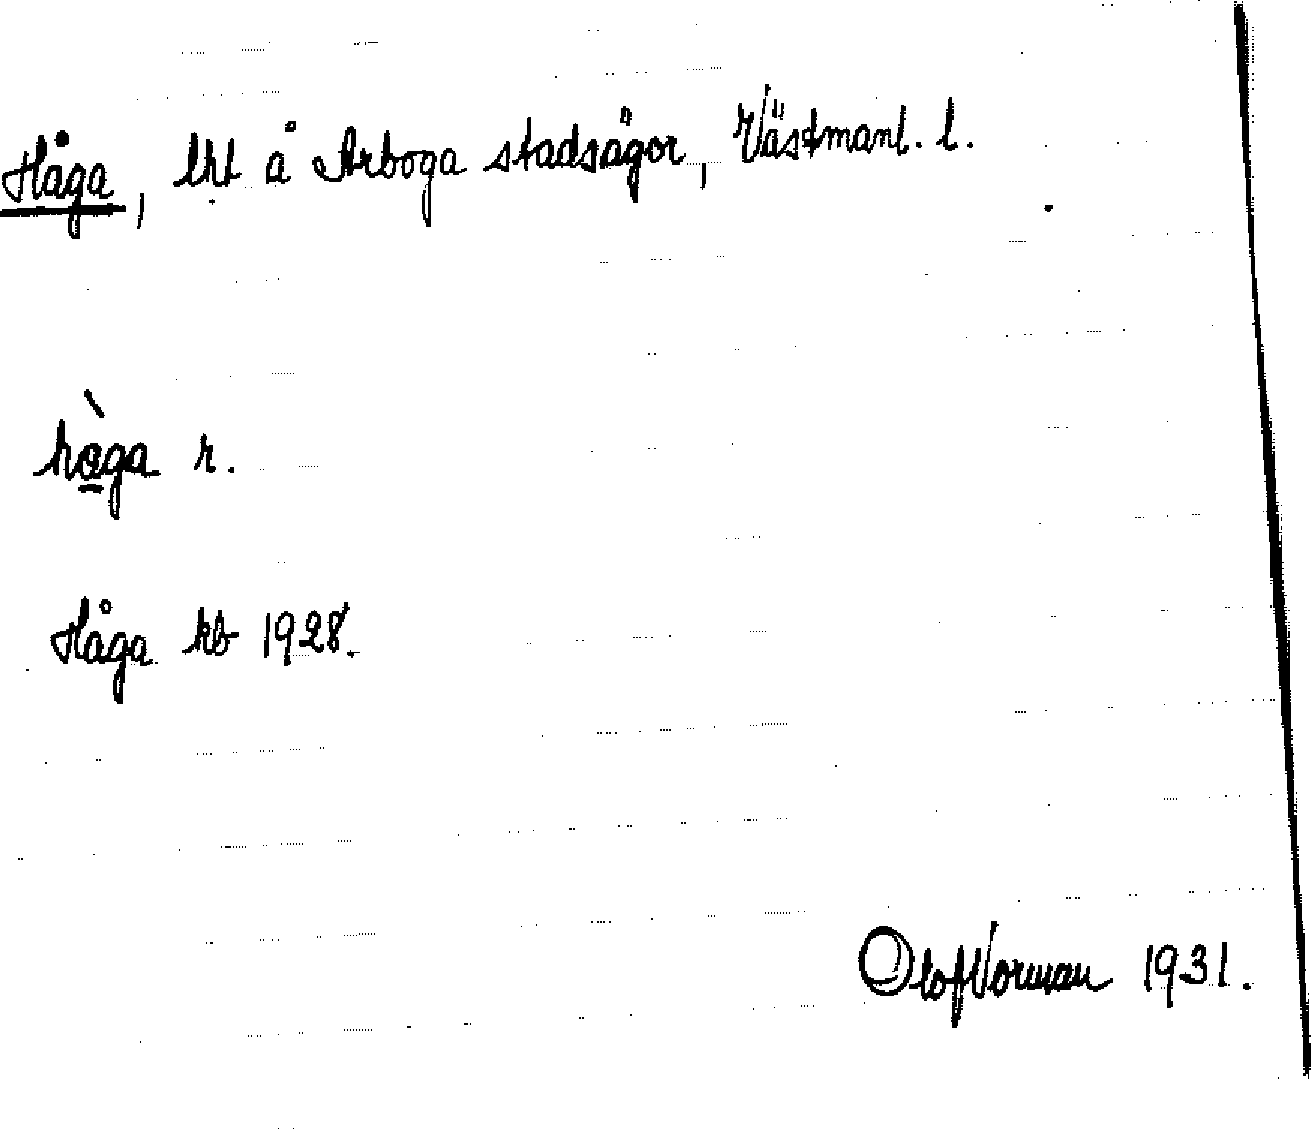 Håga, lht å Arboga stadsägor, Västmanl. l.
hàga r.
Håga kb 1928.
Olof Norman 1931.